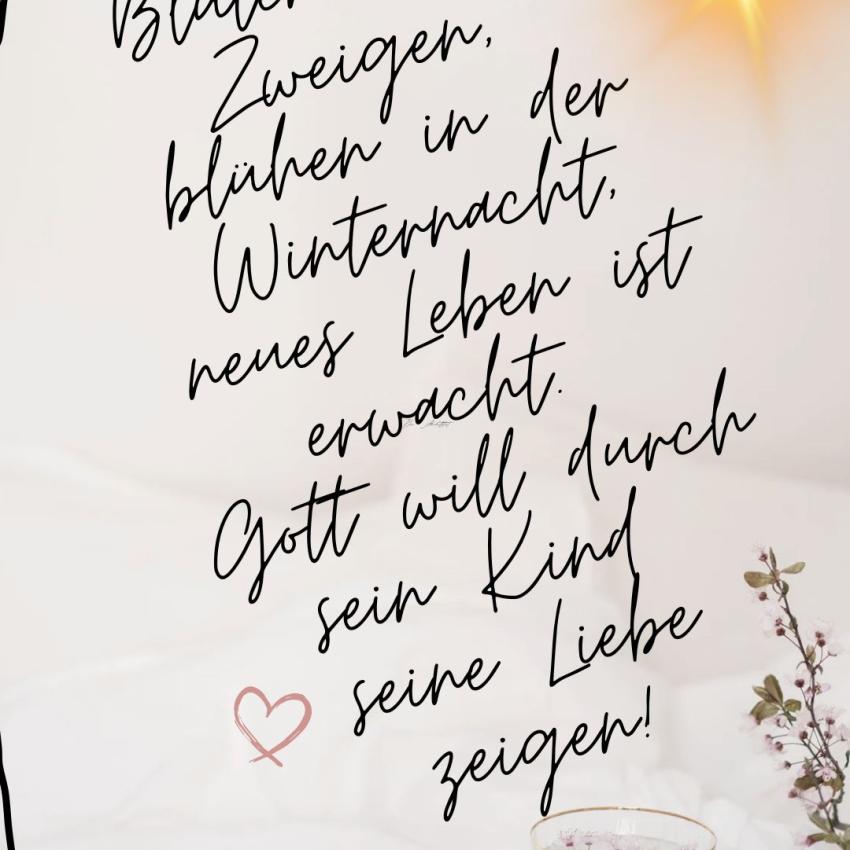 Zweigen,
blühen in der
Winternacht,
neues Leben ist
erwacht.
Gott will durch
sein Kind
seine Liebe
zeigen!